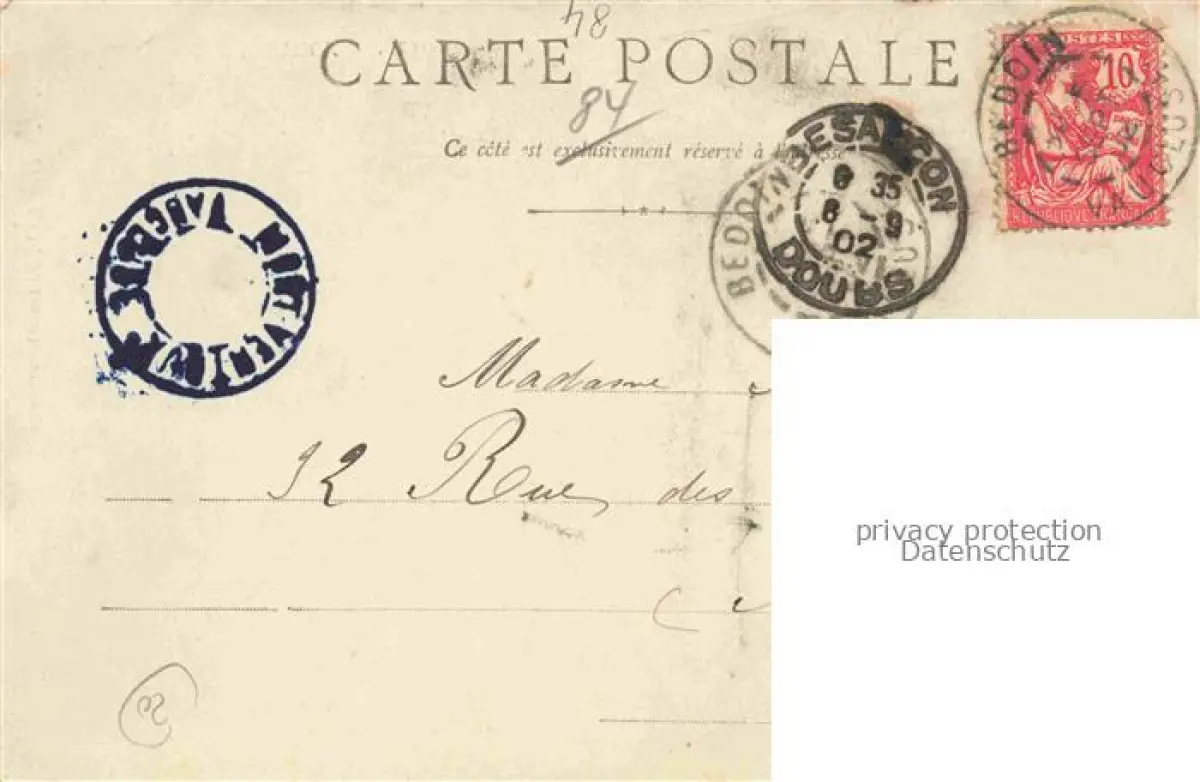 84
CARTE POSTALE
84
Ce côté est exclusivement réservé à l'adresse
BEDOIN VAUCLUSE
POSTES
10
REPUBLIQUE FRANÇAISE
BESANÇON
8 35
6 - 9
02
DOUBS
BEDOIN
MONT VENTOUX
VAUCLUSE
Madame
32 Rue des
privacy protection
Datenschutz